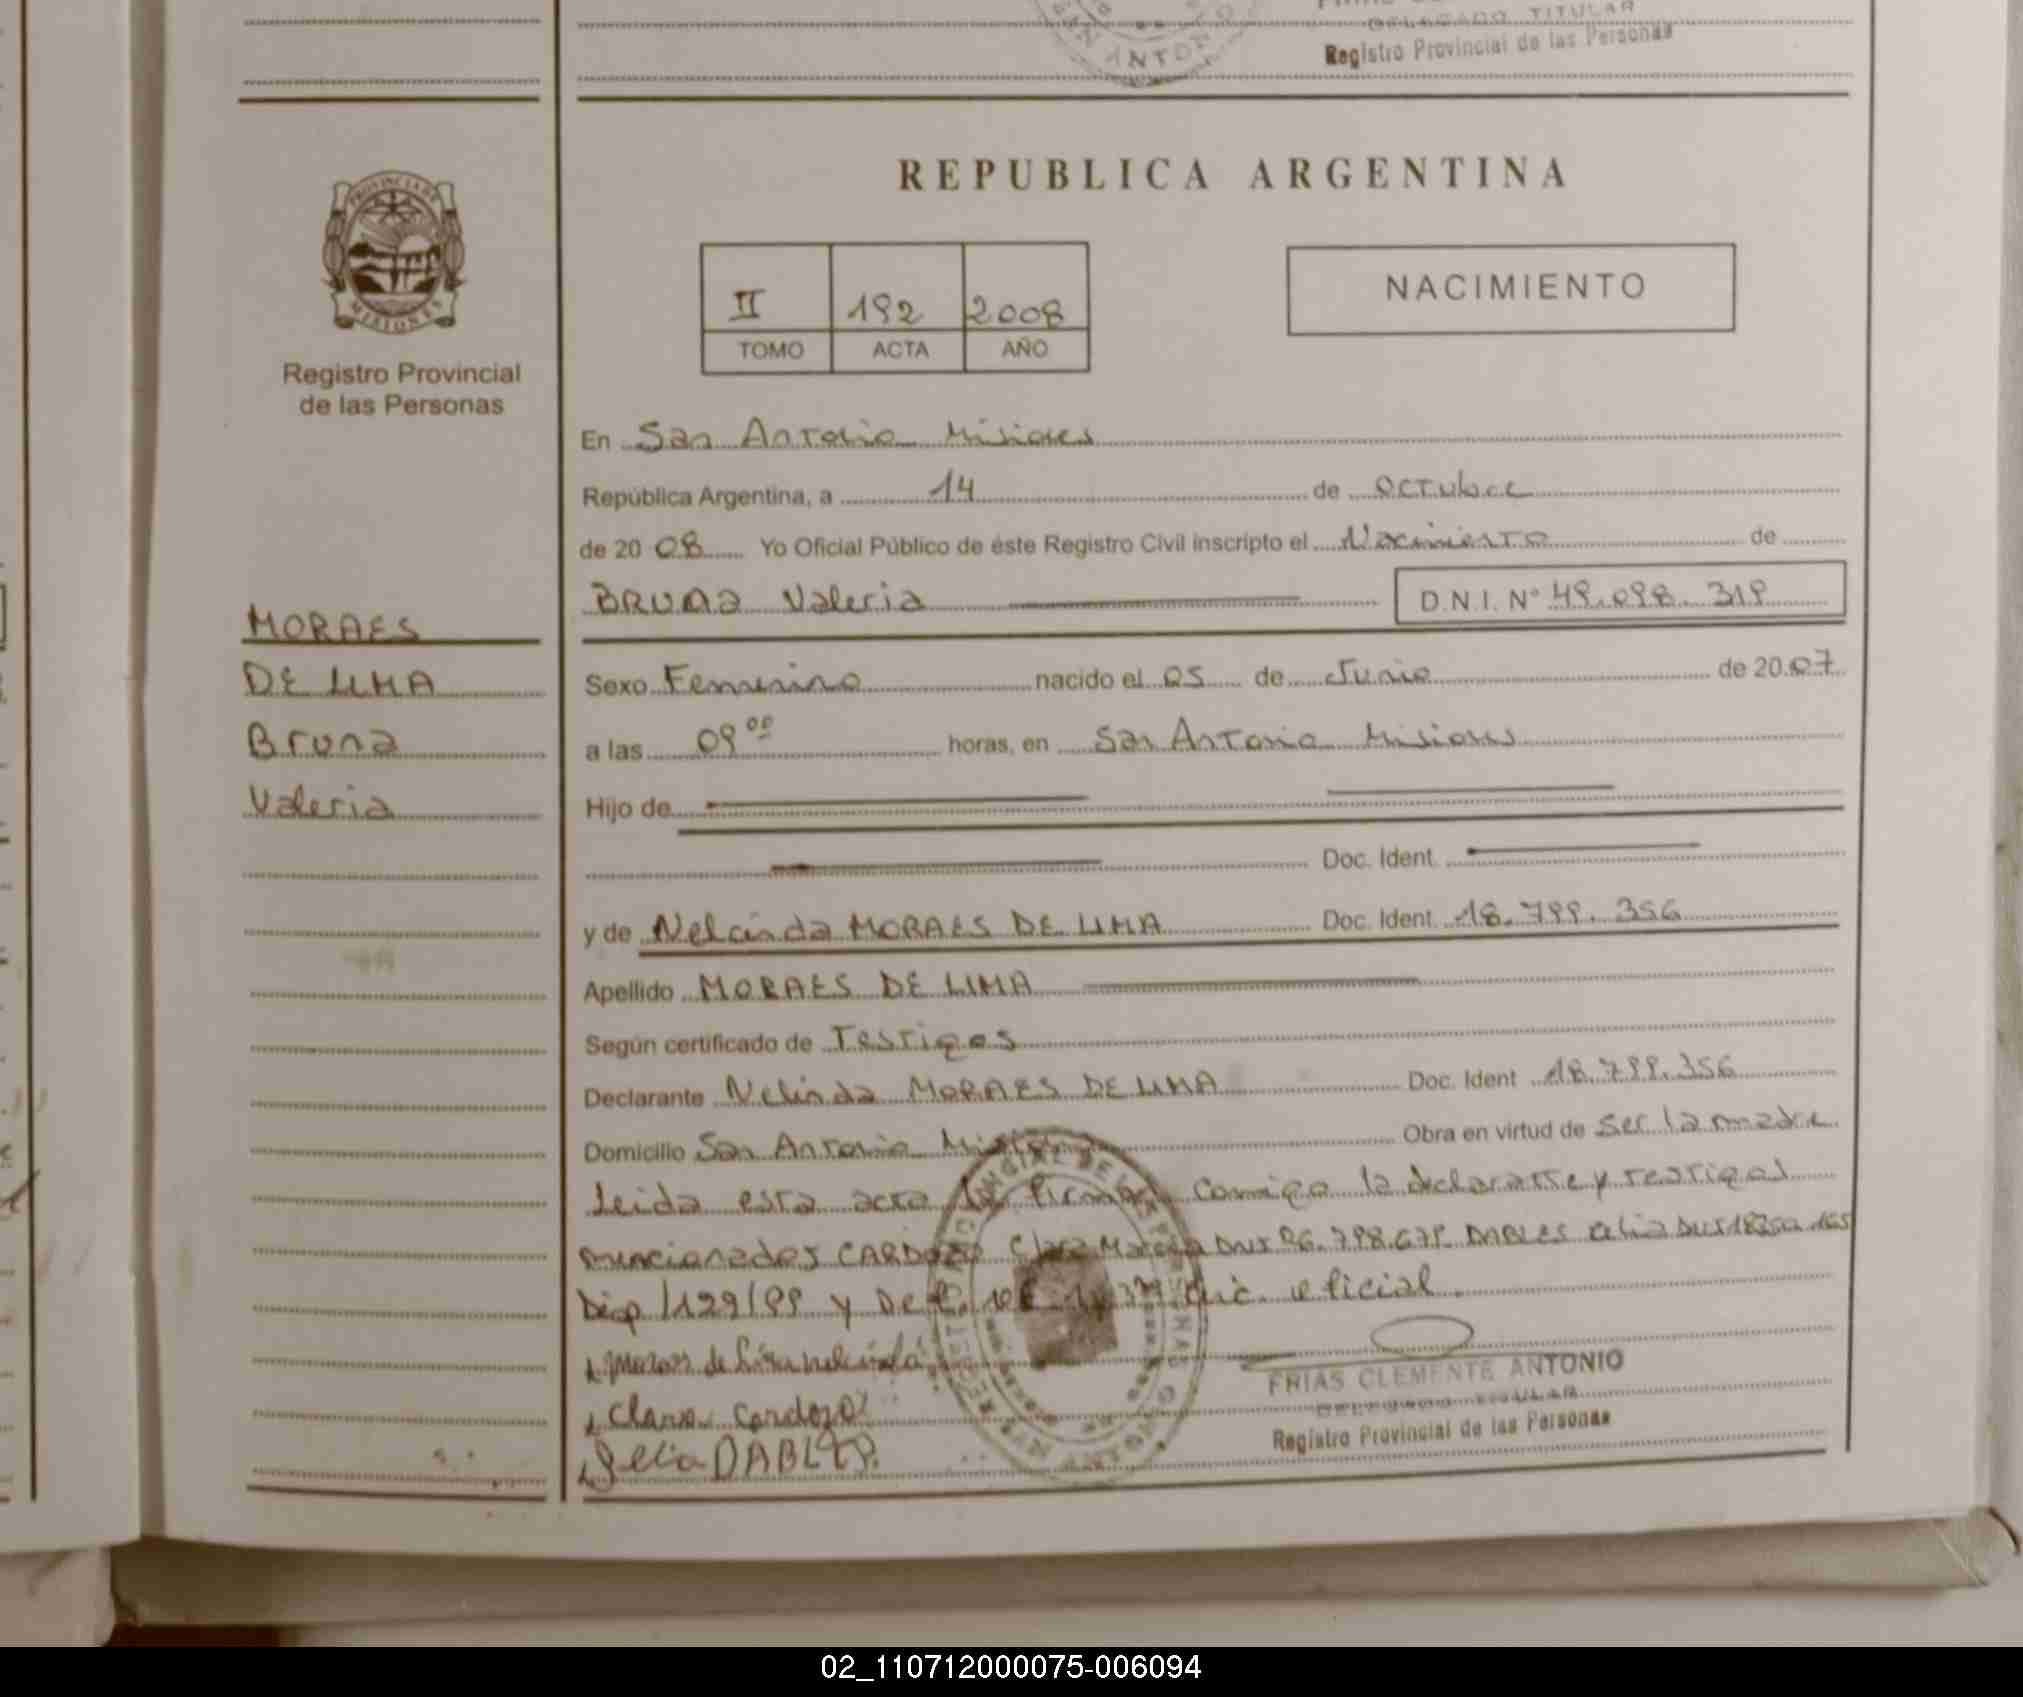 DELEGADO TITULAR
Registro Provincial de las Personas
ANTONIO
PROVINCIA DE
MISIONES
Registro Provincial
de las Personas
MORAES
DE LIMA
Bruna
Valeria
REPUBLICA ARGENTINA
II 192 2008
TOMO ACTA AÑO
NACIMIENTO
En San Antonio Misiones
República Argentina, a 14 de octubre
de 20 08 Yo Oficial Público de éste Registro Civil inscripto el Nacimiento de
BRUNA Valeria D.N.I. N° 49.098.319
Sexo Femenino nacido el 05 de Junio de 20 07
a las 09 00 horas, en San Antonio Misiones
Hijo de
Doc. Ident.
y de Nelcinda MORAES DE LIMA Doc. Ident. 18.799.356
Apellido MORAES DE LIMA
Según certificado de Testigos
Declarante Nelinda MORAES DE LIMA Doc. Ident 18.799.356
Domicilio San Antonio Misiones Obra en virtud de ser la madre
Leida esta acta la firman comigo la declarante y testigos
mencionados CARDOZO Clara DNI 26.798.679 DABLES DNI
Disp/129/99 y oficial
Moraes de Lima nelcinda
Clara Cardozo
Delia DABLES
FRIAS CLEMENTE ANTONIO
DELEGADO TITULAR
Registro Provincial de las Personas
02_110712000075-006094